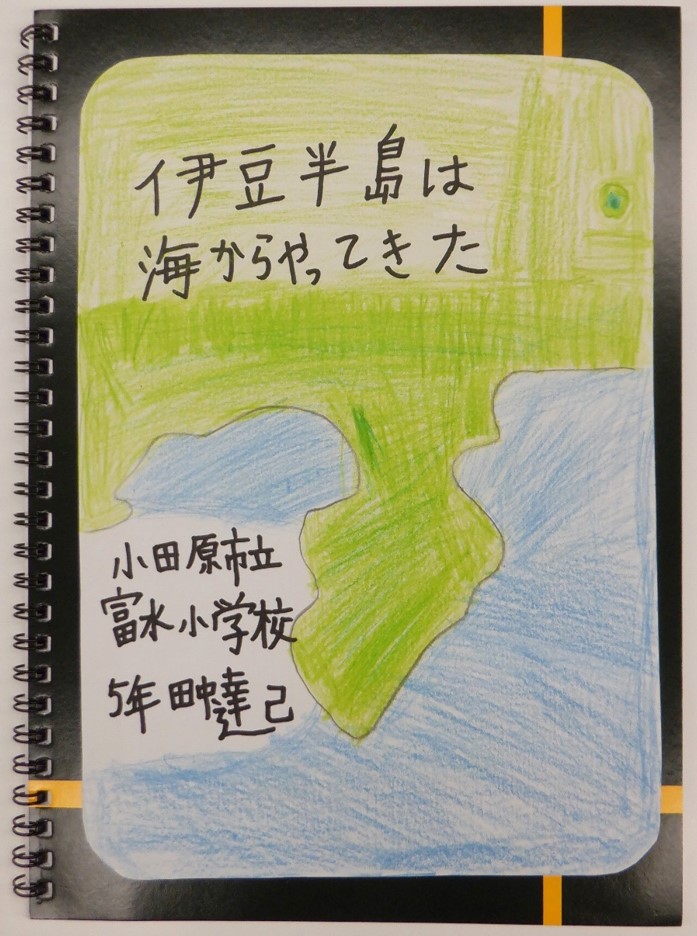 伊豆半島は
海からやってきた
小田原市立
富水小学校
5年田中達己